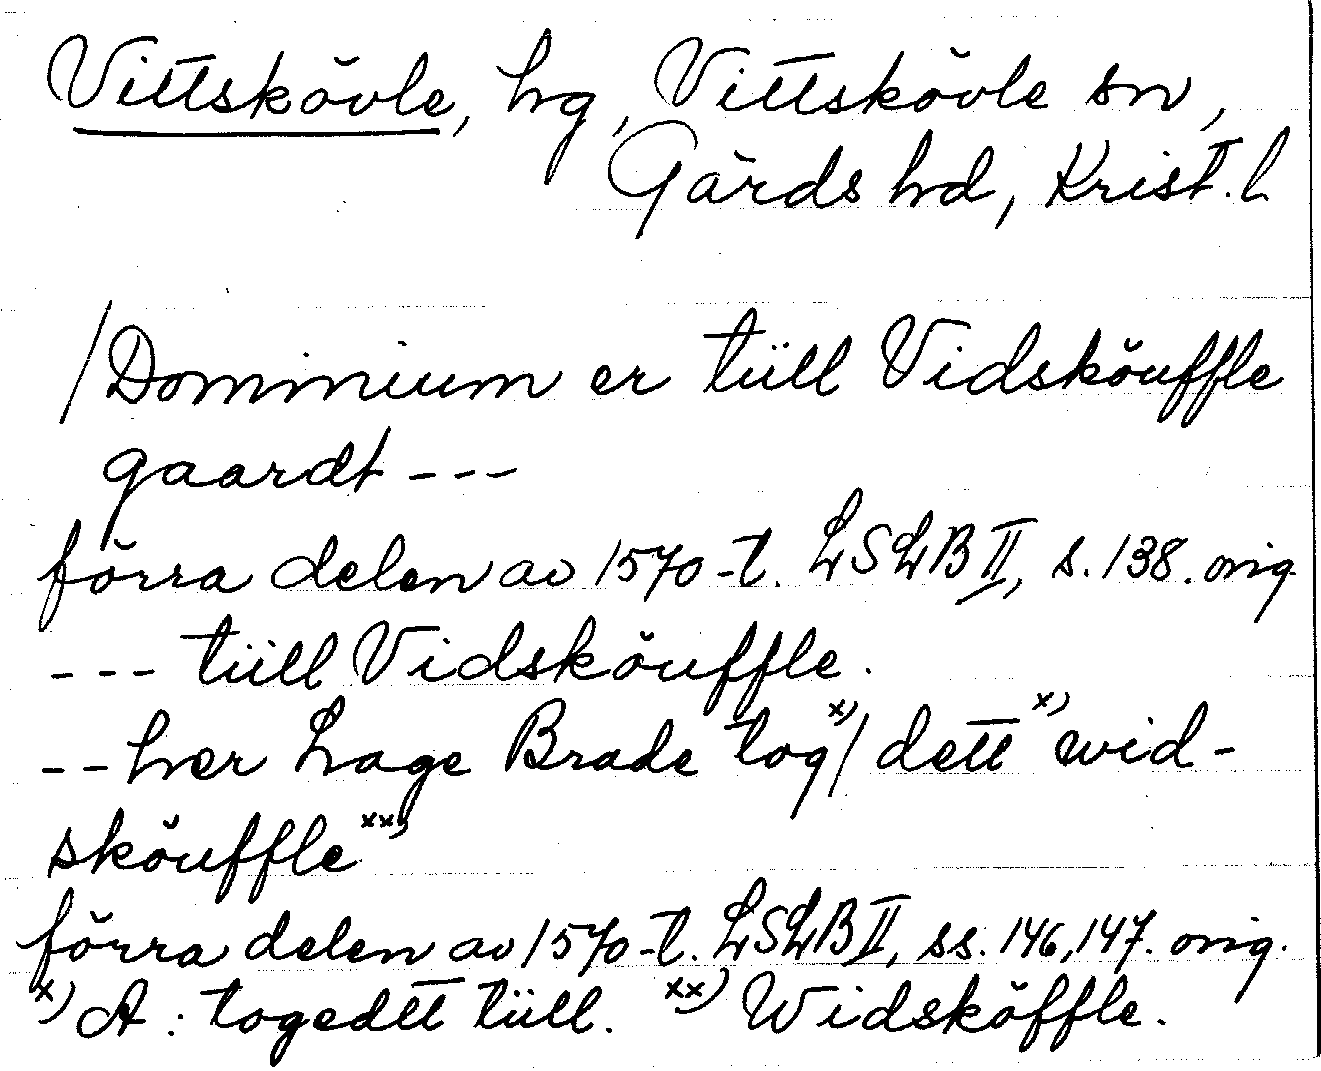 Vittskövle, hg, Vittskövle sn,
Gärds hd, Krist. l
/Dominium er tüll Vidsköuffle
gaardt ---
förra delen av 1570-t. LSLB II, s. 138. orig
--- tüll Vidsköuffle.
-- her Lage Brade tog x)/ dett x) wid-
sköuffle xx)
förra delen av 1570-t. LSLB II, ss. 146, 147. orig.
x) A: togedtt tüll. xx) Widsköffle.